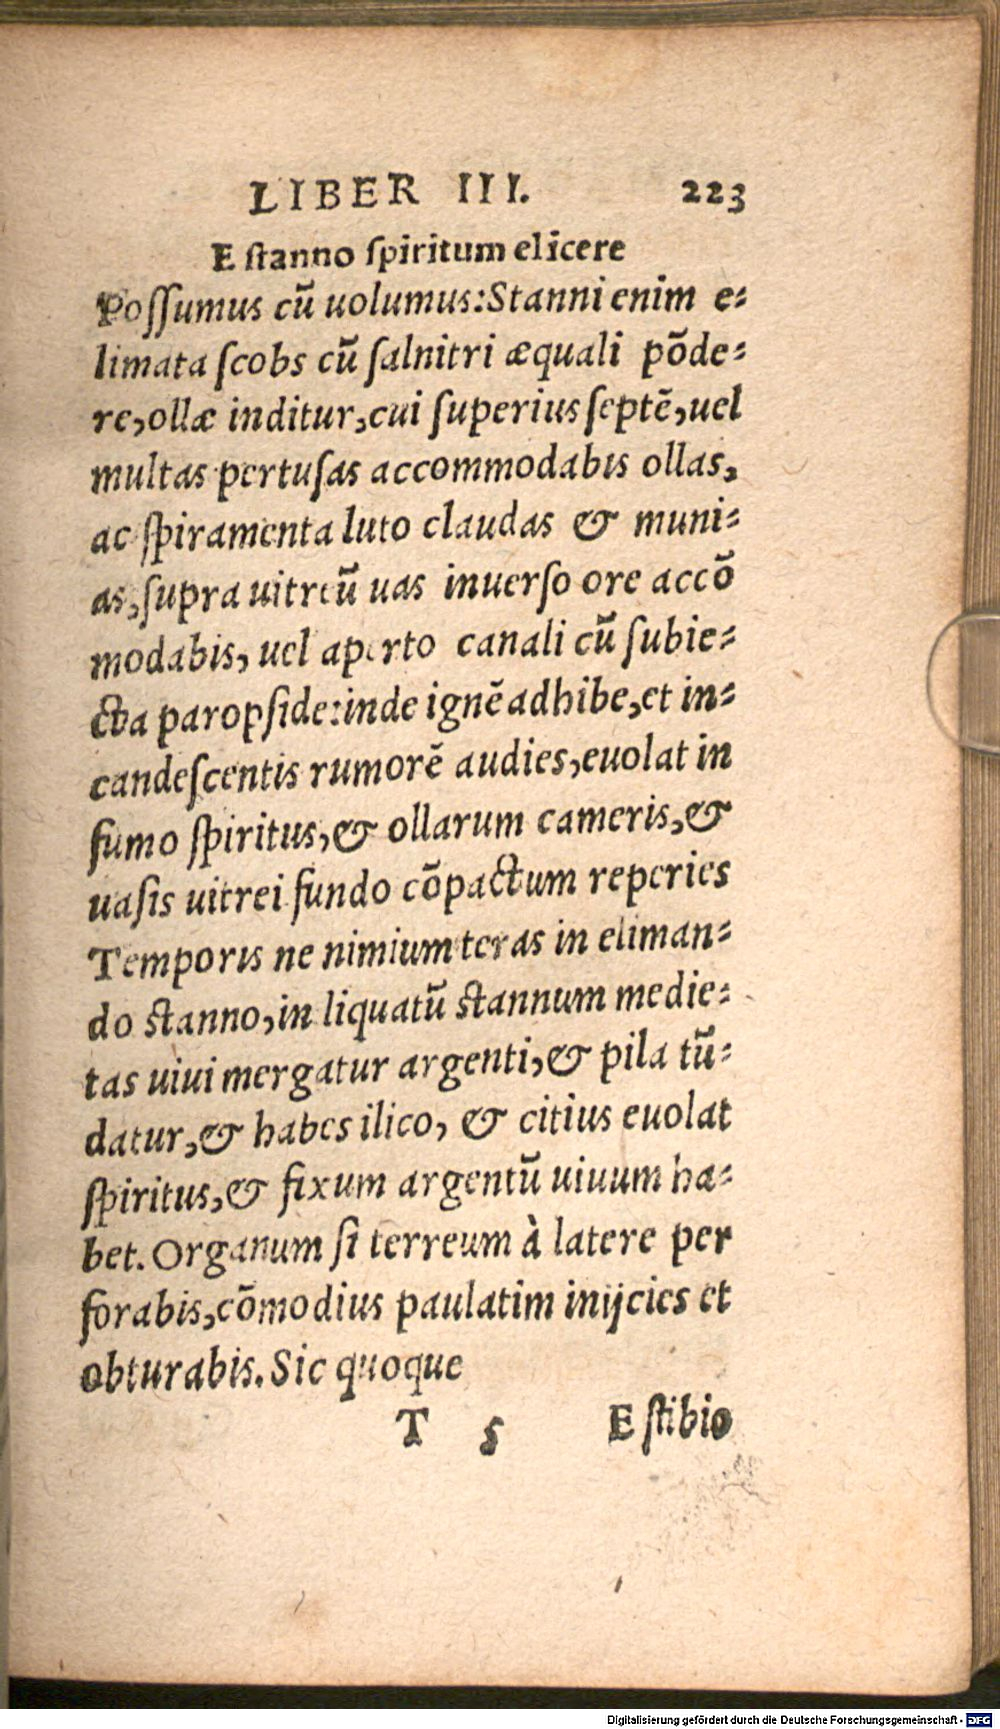 LIBER III. 223
E stanno spiritum elicere
Possumus cũ uolumus:Stanni enim e-
limata scobs cũ salnitri æquali põde-
re,ollæ inditur,cui superius septẽ,uel
multas pertusas accommodabis ollas,
ac spiramenta luto claudas & muni-
as,supra uitreũ uas inuerso ore accõ
modabis, uel aperto canali cũ subie-
cta paropside:inde ignẽ adhibe,et in-
candescentis rumorẽ audies,euolat in
fumo spiritus,& ollarum cameris,&
uasis uitrei fundo cõpactum reperies
Temporis ne nimium teras in eliman-
do stanno,in liquatũ stannum medie-
tas uiui mergatur argenti,& pila tũ-
datur,& habes ilico, & citius euolat
spiritus,& fixum argentũ uiuum ha-
bet. Organum si terreum à latere per
forabis,cõmodius paulatim inijcies et
obturabis. Sic quoque
T 5 E stibio
Digitalisierung gefördert durch die Deutsche Forschungsgemeinschaft - DFG